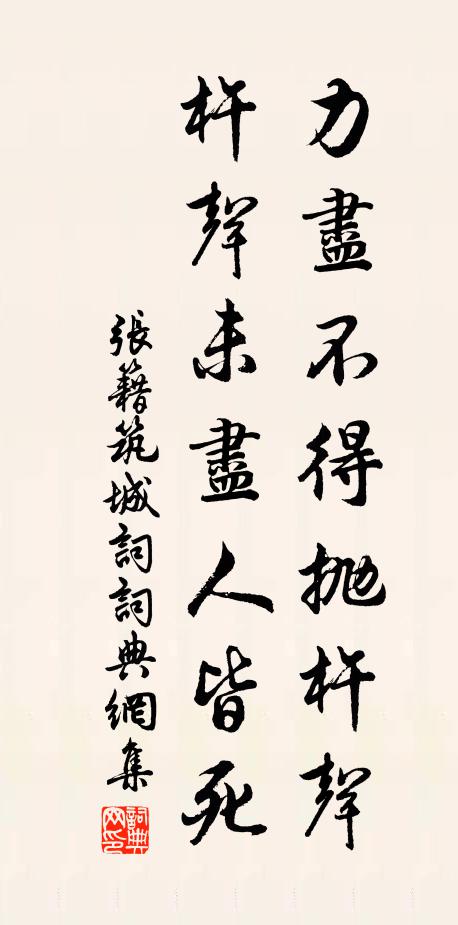 力盡不得拋杵聲
杵聲未盡人皆死
張籍筑城詞詞典網集
詞典
网印